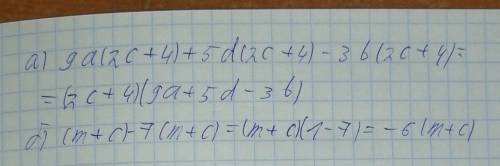 а) 9a(2c+4)+5d(2c+4)-3b(2c+4)=
=(2c+4)(9a+5d-3b)
б) (m+c)-7(m+c)=(m+c)(1-7)=-6(m+c)